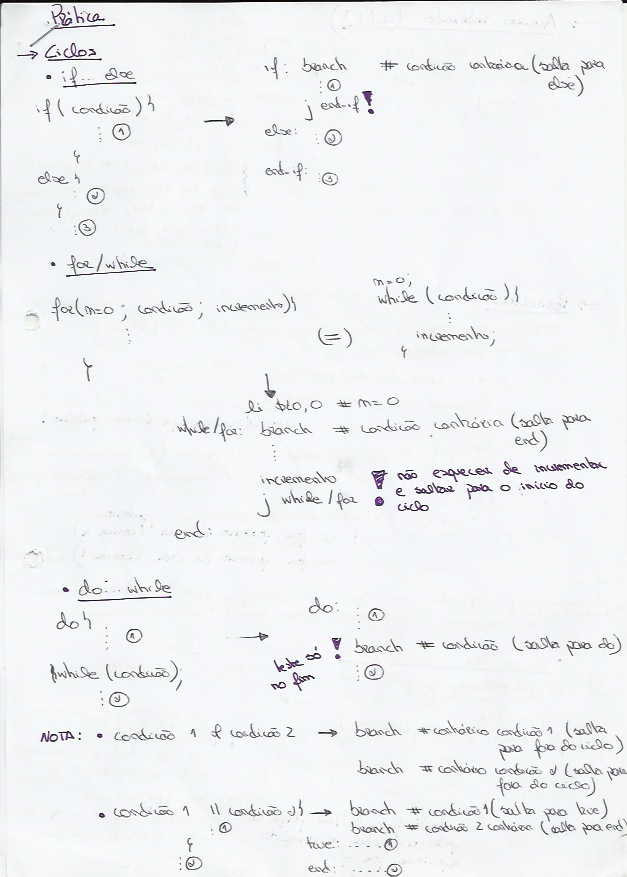 Prática
→ Ciclos
• if... else
if (condição) {
⋮ ①
}
else {
⋮ ②
}
⋮ ③
→
if: branch # condição contrária (salta para else)
⋮ ①
j end-if !
else:
⋮ ②
end-if:
⋮ ③
• for/while
for(n=0; condição; incremento){
⋮
}
(=)
n=0;
while (condição) {
⋮
incremento;
}
↓
li $t0, 0 # n=0
while/for: branch # condição contrária (salta para end)
⋮
incremento
j while/for
! não esquecer de incrementar
e saltar para o início do
ciclo
end: ......
• do... while
do {
⋮ ①
} while (condição);
⋮ ②
→
do:
⋮ ①
teste só
no fim
! branch # condição (salta para do)
⋮ ②
NOTA: • condição 1 & condição 2 → branch # contrário condição 1 (salta
para fora do ciclo)
branch # contrário condição 2 (salta para
fora do ciclo)
• condição 1 || condição 2 { → branch # condição 1 (salta para true)
⋮ ①
branch # condição 2 contrária (salta para end)
}
true: ..... ①
⋮ ②
end: ..... ②